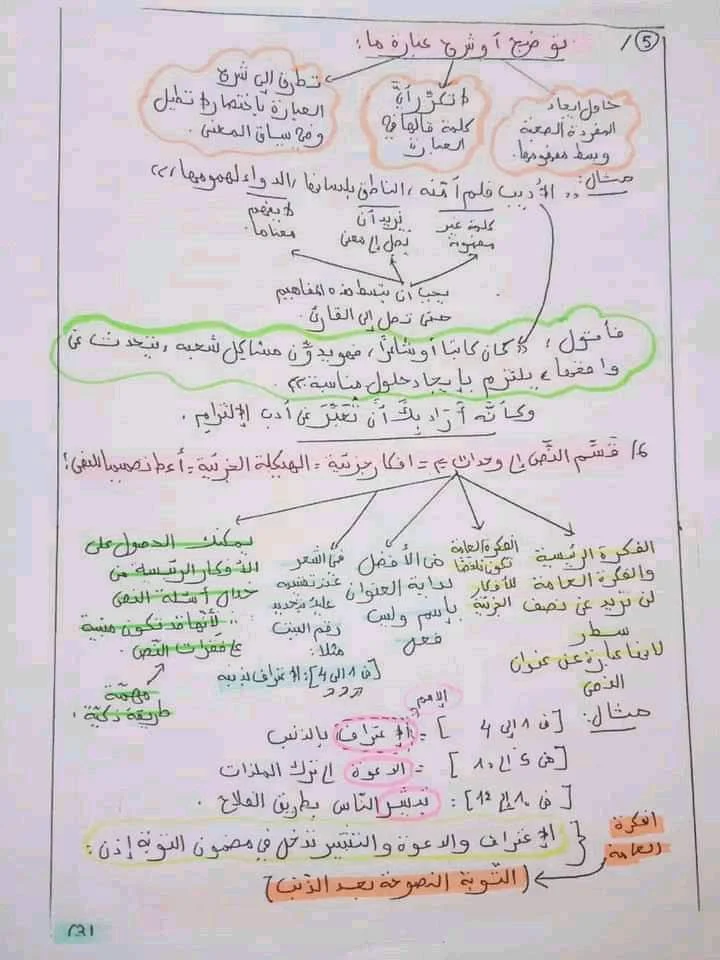 5/ توضيح أو شرح عبارة ما:
حاول إيجاد
المفردة الصعبة
وبسط مفهومها.
لا تكرر أي
كلمة قالها في
العبارة
تطرق إلى شرح
العبارة باختصار لا تطيل
وفي سياق المعنى.
مثال: "الأديب قلم أمته، الناطق بلسانها، الدواء لهمومها"
كلمة غير
مفهومة
نريد أن
نصل إلى معنى
لا يفهم
معناها.
يجب أن تبسط هذه المفاهيم
حتى تصل إلى القارئ.
فأقول: "كان كاتبا أو شاعرا، فهو يدون مشاكل شعبه، يتحدث عن
واقعها، يلتزم بإيجاد حلول مناسبة".
وكأنه أراد بك أن تعبر عن أدب الإلتزام.
6/ قسم النص إلى وحدات = أفكار جزئية = الهيكلة الفكرية = أعط تصميما للنص!
الفكرة الرئيسية
والفكرة العامة
لن تزيد عن نصف
سطر
لأنها عبارة عن عنوان
النص
الفكرة العامة
تكون ملخصا
للأفكار
الجزئية
من الأفضل
بداية العنوان
بإسم وليس
فعل
في الشعر
عند تقسيمه
عليك بتحديد
رقم البيت
مثلا:
[من 1 إلى 4]: الاعتراف بذنبه
يمكنك الحصول على
الأفكار الرئيسية من
خلال أسئلة النص
لأنها قد تكون مبنية
على فقرات النص.
مهمة
طريقة ذكية.
مثال:
الإسم
[من 1 إلى 4] = الإعتراف بالذنب
[من 5 إلى 10] = الدعوة إلى ترك الملذات
[من 10 إلى 12]: تبشير الناس بطريق الفلاح.
الفكرة
العامة
الإعتراف والدعوة والتبشير تدخل في مضمون التوبة إذن:
(التوبة النصوحة بعد الذنب)